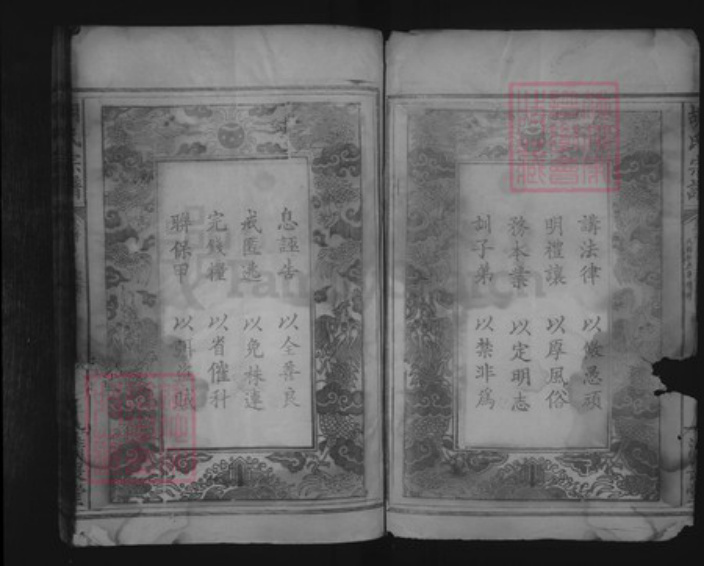 講法律 以儆愚頑
明禮讓 以厚風俗
務本業 以定明志
訓子弟 以禁非為
息誣告 以全善良
戒匿逃 以免株連
完錢糧 以省催科
聯保甲 以 賊
氏宗譜
FamilySearch